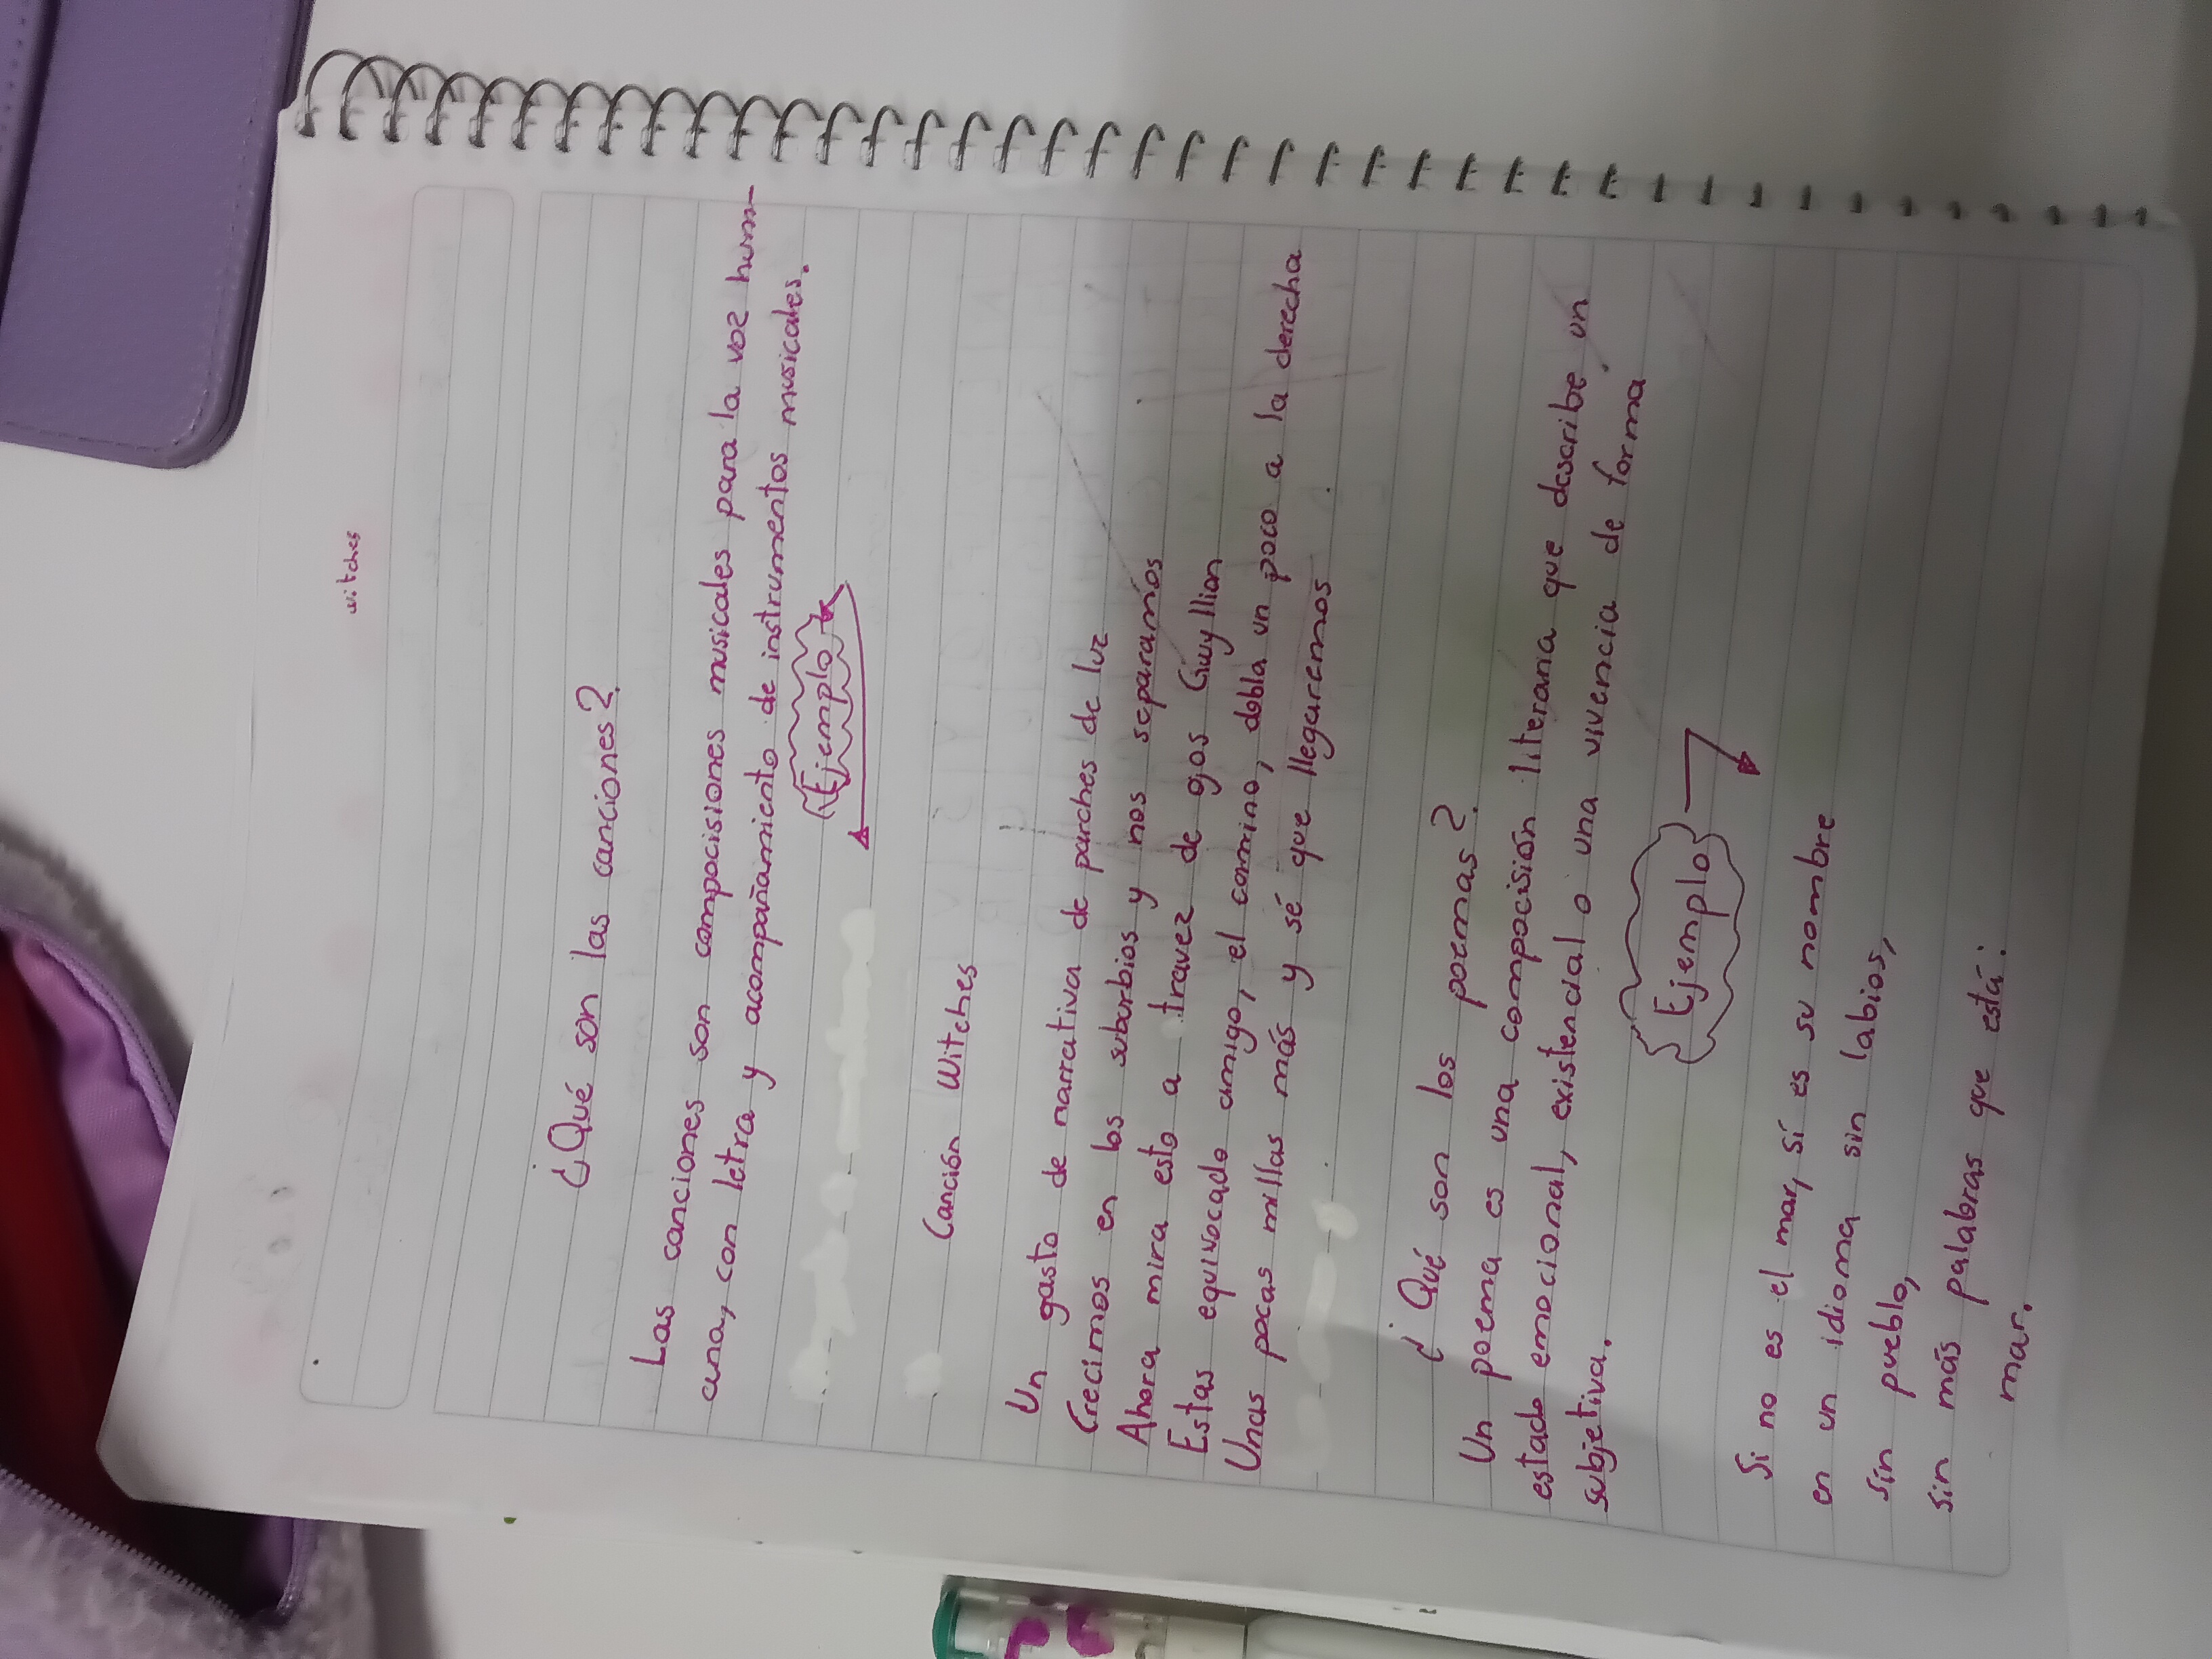 witches
¿Qué son las canciones?
Las canciones son compocisiones musicales para la voz hum-
ana, con letra y acompañamiento de instrumentos musicales.
Ejemplo
Canción Witches
Un gasto de narrativa de parches de luz
Crecimos en los suburbios y nos separamos
Ahora mira esto a travez de ojos Gwyllion
Estas equivocado amigo, el comino, dobla un poco a la derecha
Unas pocas millas más y sé que llegaremos
¿Qué son los poemas?
Un poema es una compocisión literaria que describe un
estado emocional, existencial o una vivencia de forma
subjetiva.
Ejemplo
Si no es el mar, sí es su nombre
en un idioma sin labios,
sin pueblo,
sin más palabras que está:
mar.